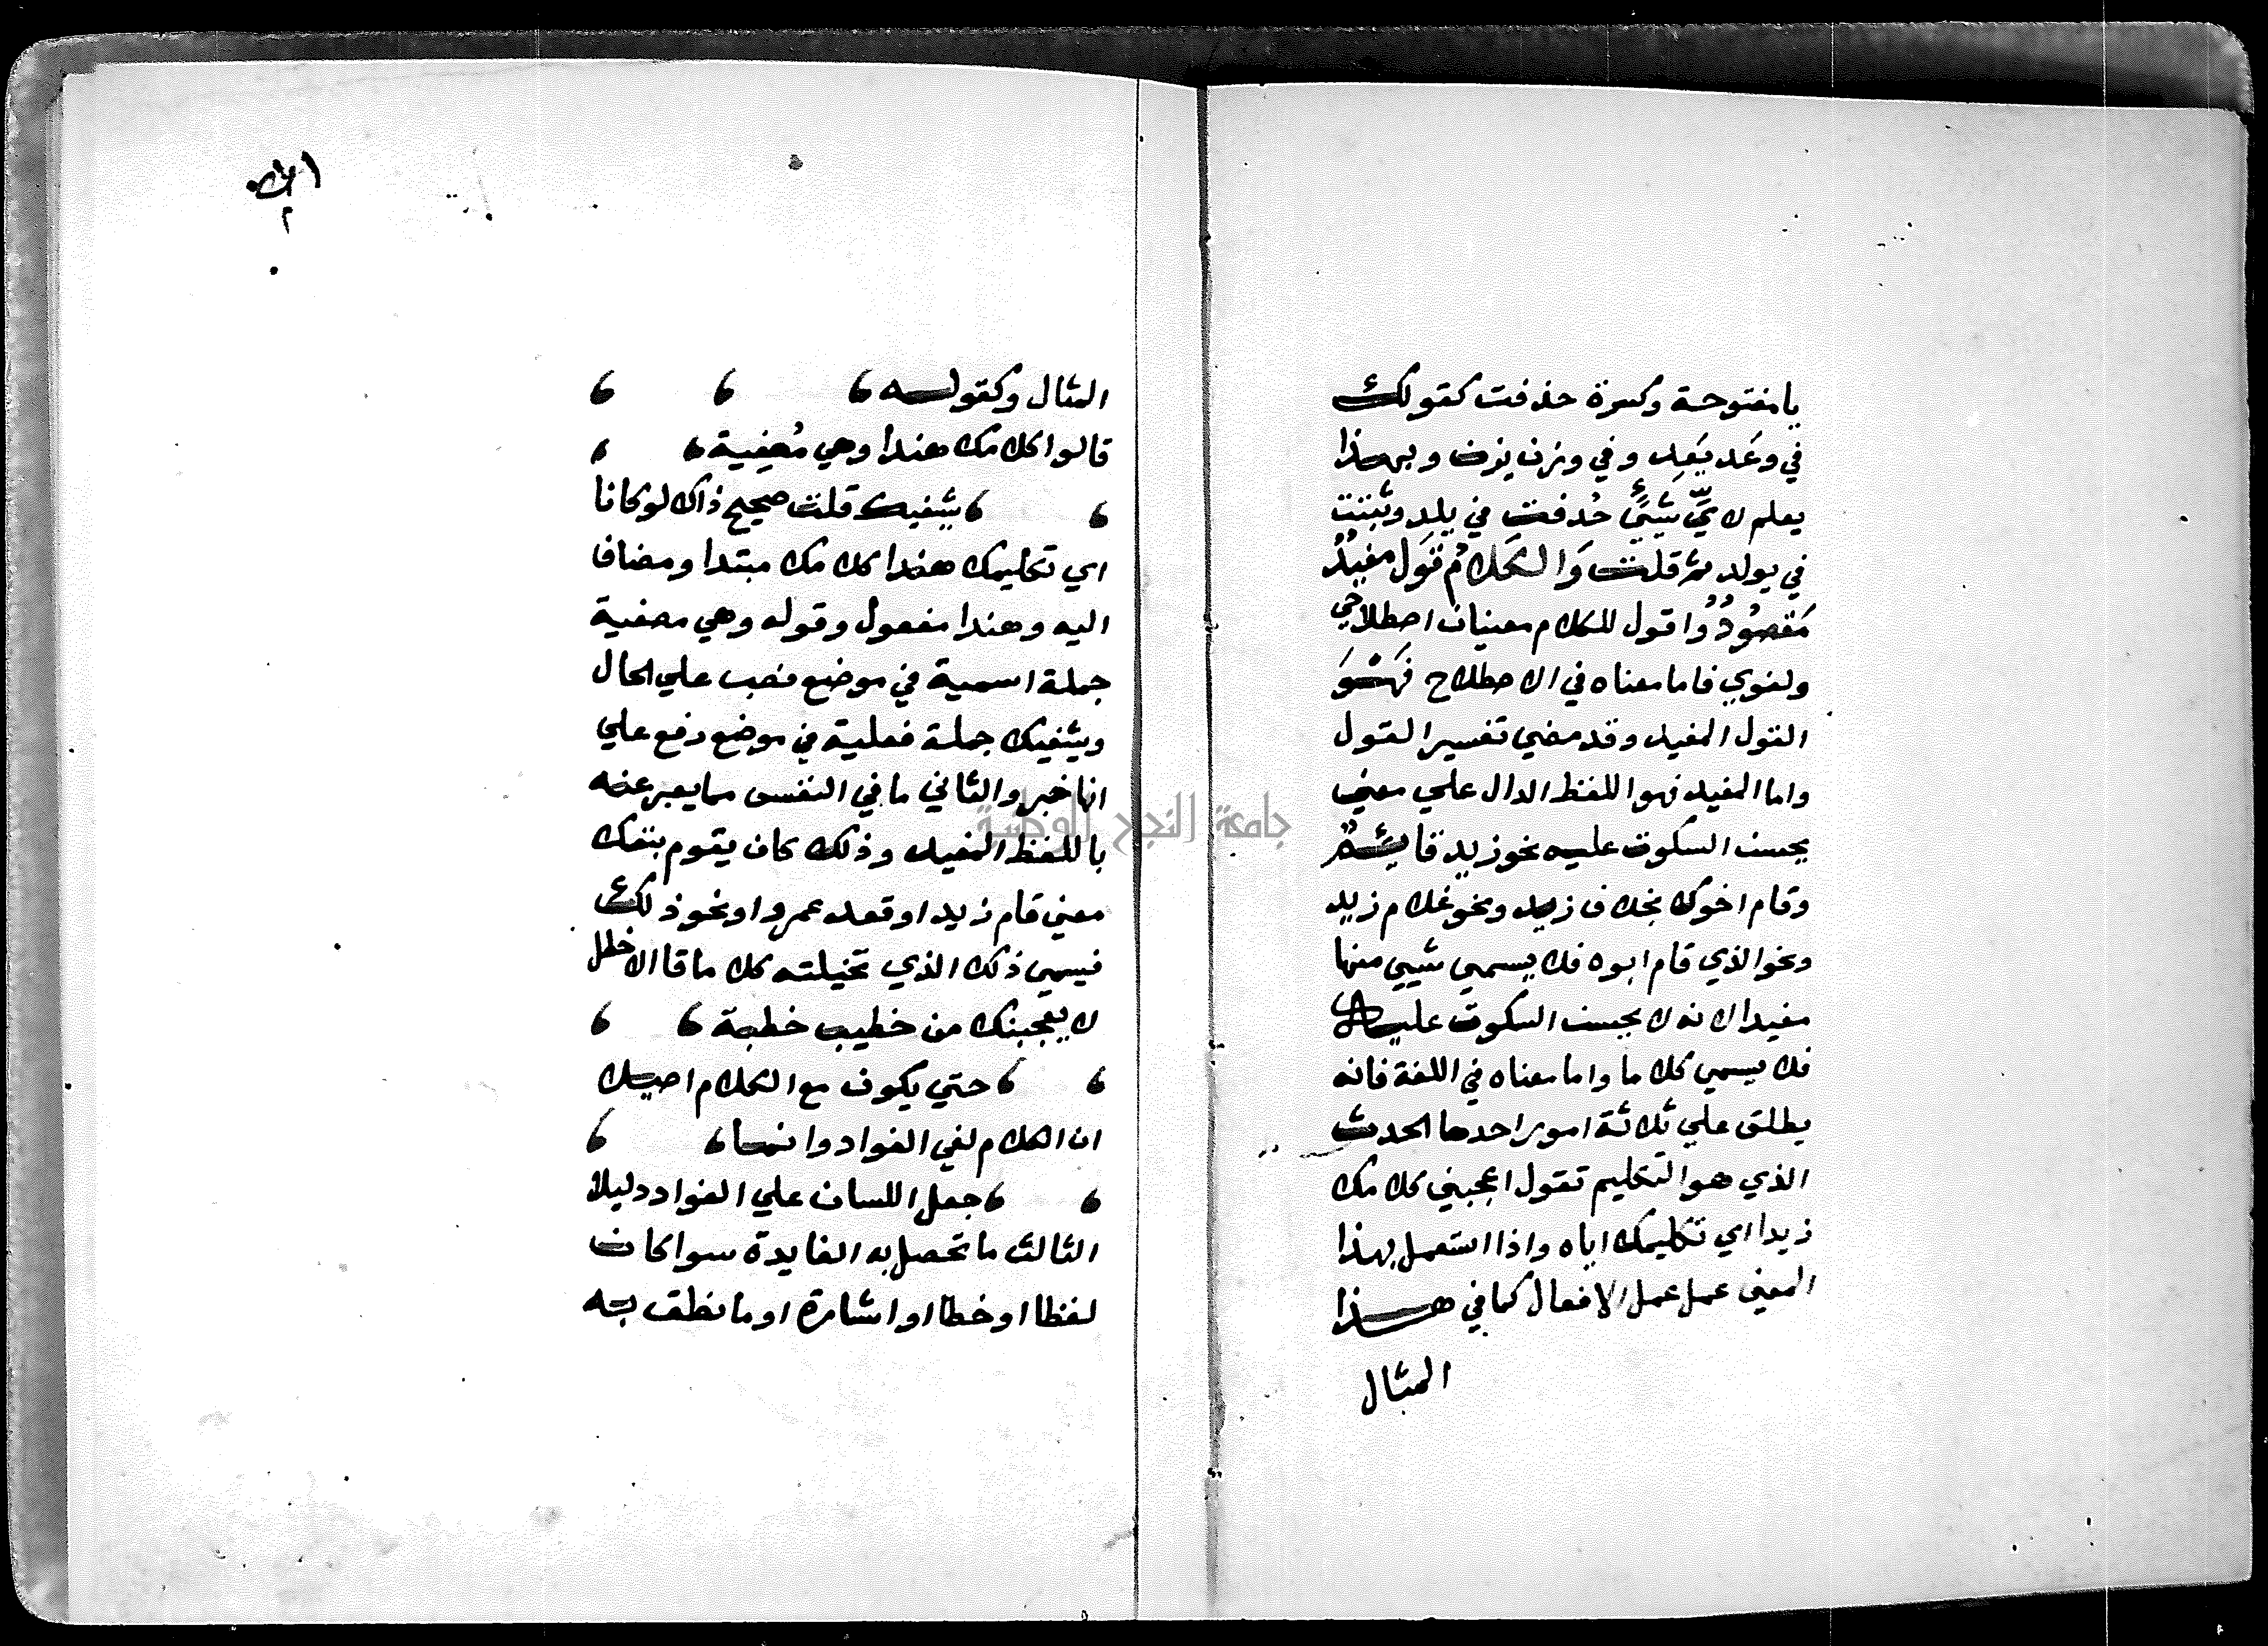 يا مفتوحة وكسرة حذفت كقولك
في وَعَد يَعِد وفي وزن يزن وبهذا
يعلم لايِّ شيئٍ حُذفت في يلد وثبتت
في يولد ثم قلت وَالكَلامُ قَول مفيدٌ
مَقصُودٌ وُاقول للكلام معنيان اصطلاحي
ولغوي فاما معناه في الاصطلاح فَهُوَ
القول المفيد وقد مضي تفسير القول
واما المفيد فهو اللفظ الدال علي معني
يحسن السكوت عليه نحو زيد قايمٌ
وقام اخوك بخلاف زيد ونحو غلام زيد
ونحو الذي قام ابوه فلا يسمي شيي منها
مفيدا لانه لا يحسن السكوت عليها
فلا يسمي كلاما واما معناه في اللغة فانه
يطلق علي ثلاثة امور احدها الحدث
الذي هو التكليم تقول اعجبني كلامك
زيدا اي تكليمك اياه واذا استعمل بهذا
المعني عمل عمل الافعال كما في هذا
المثال
المثال وكقوله
قالوا كلامك هندا وهي مُصغية
يشفيك قلت صحيح ذاك لو كانا
اي تكليمك هندا كلامك مبتدا ومضاف
اليه وهندا مفعول وقوله وهي مصغية
جملة اسمية في موضع نصب علي الحال
ويشفيك جملة فعلية في موضع رفع علي
انها خبر والثاني ما في النفس مما يعبر عنه
باللفظ المفيد وذلك كان يقوم بنفسك
معني قام زيد او قعد عمرو او نحو ذلك
فيسمي ذلك الذي تخيلته كلاما قال الاخطل
لا يعجبنك من خطيب خطبة
حتي يكون مع الكلام اصيلا
ان الكلام لفي الفواد وانما
جعل اللسان علي الفواد دليلا
الثالث ما تحصل به الفايدة سوا كان
لفظا او خطا او اشارة او ما نطق به
جامعة النجاح الوطنية